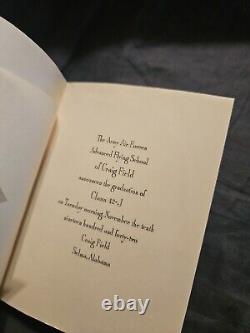 The Army Air Forces
Advanced Flying School
of Craig Field
announces the graduation of
Class 42-J
on Tuesday morning, November the tenth
nineteen hundred and forty-two
Craig Field
Selma, Alabama